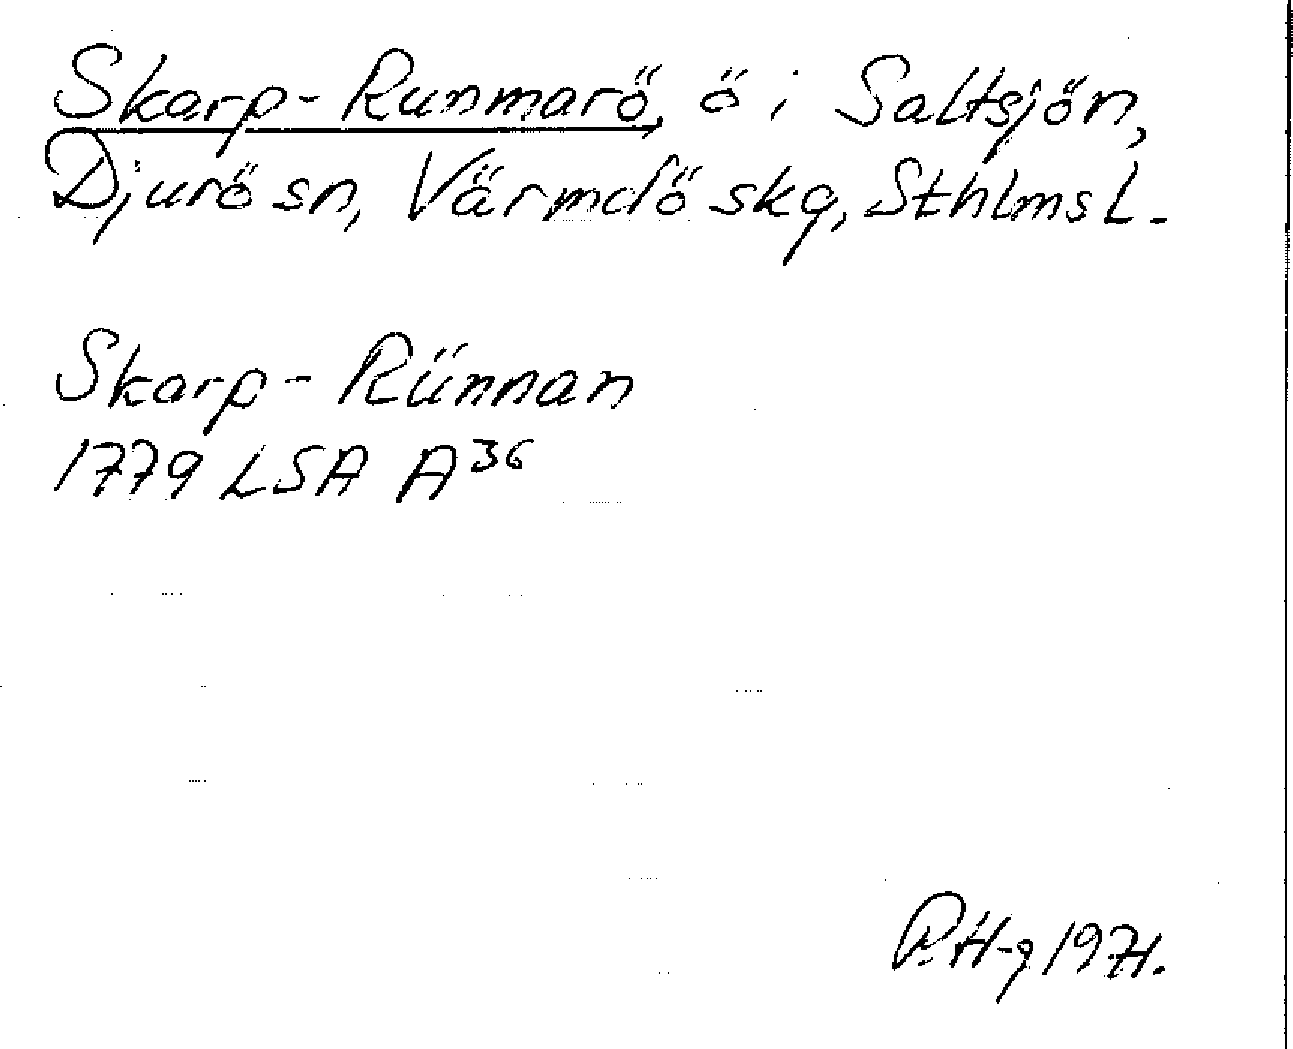 Skarp-Runmarö, ö i Saltsjön,
Djurö sn, Värmdö skg, Sthlms L.
Skarp-Rünnan
1779 LSA A36
R.H-g 1971.